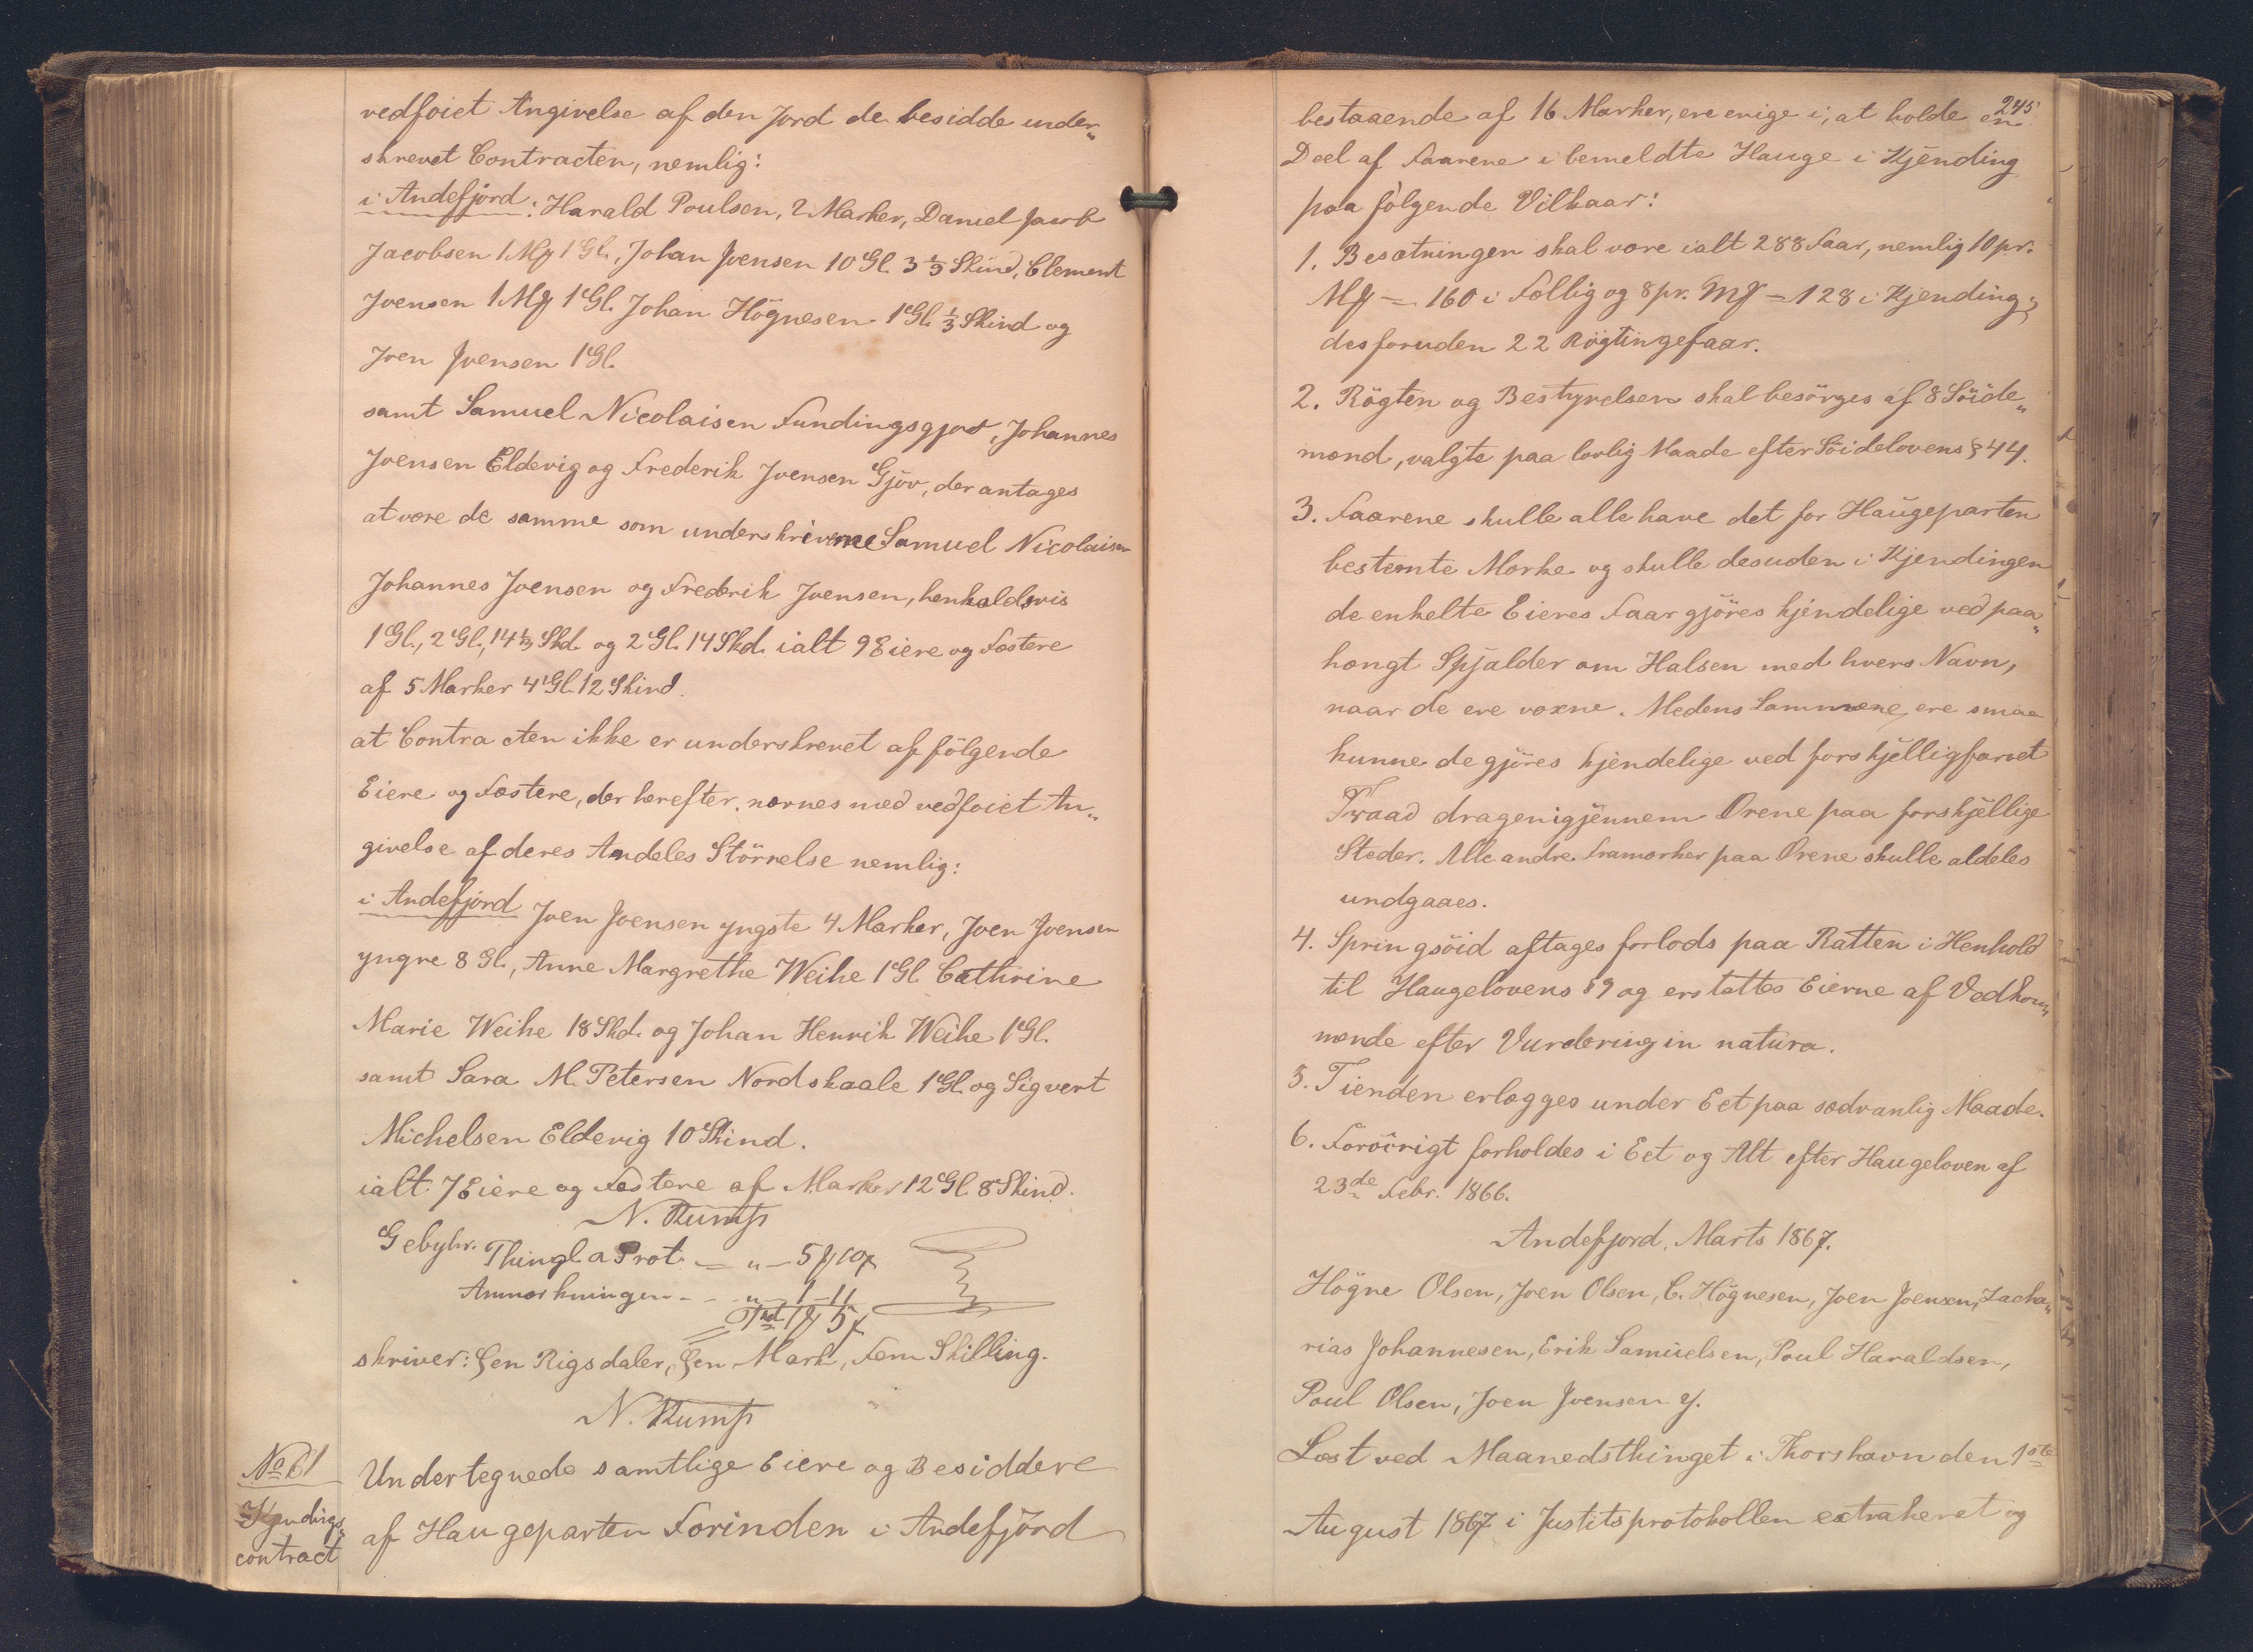 vedføiet Angivelse af den Jord de besidde under„
skrevet Contracten, nemlig:
i Andefjord: Harald Poulsen, 2 Marker, Daniel Jacob
Jacobsen 1 Mg 1 Gl., Johan Joensen 10 Gl. 3 1/3 Skind, Clement
Joensen 1 Mg 1 Gl. Johan Högnesen 1 Gl. 1/3 Skind og
Joen Joensen 1 Gl.
samt Samuel Nicolaisen Fundingsgjov, Johannes
Joensen Eldevig og Frederik Joensen Gjov, der antages
at være de samme som underskriverne Samuel Nicolaisen
Johannes Joensen og Frederik Joensen, henholdsvis
1 Gl., 2 Gl., 14 1/3 Skd. og 2 Gl. 14 Skd. ialt 9 Eiere og Fæstere
af 5 Marker 4 Gl. 12 Skind.
at Contracten ikke er underskrevet af fölgende
Eiere og Fæstere, der herefter nævnes med vedføiet An„
givelse af deres Andeles Störrelse nemlig:
i Andefjord Joen Joensen yngste 4 Marker, Joen Joensen
yngre 8 Gl., Anne Margrethe Weihe 1 Gl. Cathrine
Marie Weihe 18 Skd. og Johan Henrik Weihe 1 Gl.
samt Sara M. Petersen Nordskaale 1 Gl. og Sigvert
Michelsen Eldevig 10 Skind.
ialt 7 Eiere og Fæstere af Marker 12 Gl. 8 Skind.
N. Rump
Gebyhr. Thingl a Prot. — „ — 5 ꝟ 10 ꝟ
Anmærkningen - - „ - 1 - 11
skriver: Een Rigsdaler, Een Mark, Fem Skilling.
N. Rump
No 61
Kjendings„
contract
Undertegnede samtlige Eiere og Besiddere
af Haugeparten Forinden i Andefjörd
245
bestaaende af 16 Marker, ere enige i, at holde en
Deel af Faarene i bemeldte Hauge i Kjending
paa fölgende Vilkaar:
1. Besætningen skal være ialt 288 Faar, nemlig 10 pr.
Mg = 160 i Fællig og 8 pr. Mg = 128 i Kjending,
desforuden 22 Rögtingefaar.
2. Rögten og Bestyrelsen skal besörges af 8 Söide„
mænd, valgte paa lovlig Maade efter Söidelovens § 44.
3. Faarene skulle alle have det for Haugeparten
bestemte Mærke og skulle desuden i Kjendingen
de enkelte Eieres Faar gjöres kjendelige ved paa„
hængt Spjalder om Halsen med hvers Navn,
naar de ere voxne. Medens Lammene ere smaa
kunne de gjöres kjendelige ved forskjelligfarvet
Traad dragen igjennem Ørene paa forskjellige
Steder. Alle andre Framærker paa Ørene skulle aldeles
undgaaes.
4. Springsöid aftages forlods paa Rætten i Henhold
til Haugelovens § 9 og erstattes Eierne af Vedkom„
mende efter Vurdering in natura.
5. Tienden erlægges under Eet paa sædvanlig Maade.
6. Forövrigt forholdes i Eet og Alt efter Haugeloven af
23de Febr. 1866.
Andefjord, Marts 1867.
Högne Olsen, Joen Olsen, C. Högnesen, Joen Joensen, Zacha„
rias Johannesen, Erik Samuelsen, Poul Haraldsen,
Poul Olsen, Joen Joensen y.
Læst ved Maanedsthinget i Thorshavn den 1ste
August 1867 i Justitsprotokollen extraheret og